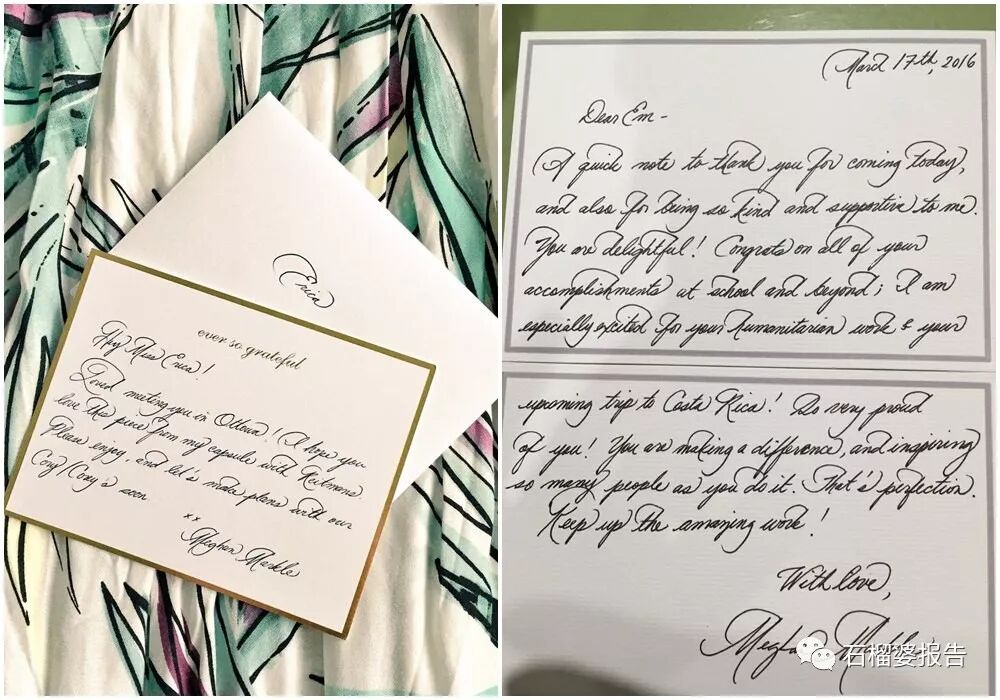 Erica
ever so grateful
Hey Miss Erica!
Loved meeting you in Ottawa! I hope you
love this piece from my capsule with Reitmans
Please enjoy, and let's make plans with our
Cory/Cory's soon
xx
Meghan Markle
March 17th, 2016
Dear Em-
A quick note to thank you for coming today,
and also for being so kind and supportive to me.
You are delightful! Congrats on all of your
accomplishments at school and beyond; I am
especially excited for your humanitarian work & your
upcoming trip to Costa Rica! So very proud
of you! You are making a difference, and inspiring
so many people as you do it. That's perfection.
Keep up the amazing work!
With love,
Meghan Markle
石榴婆报告